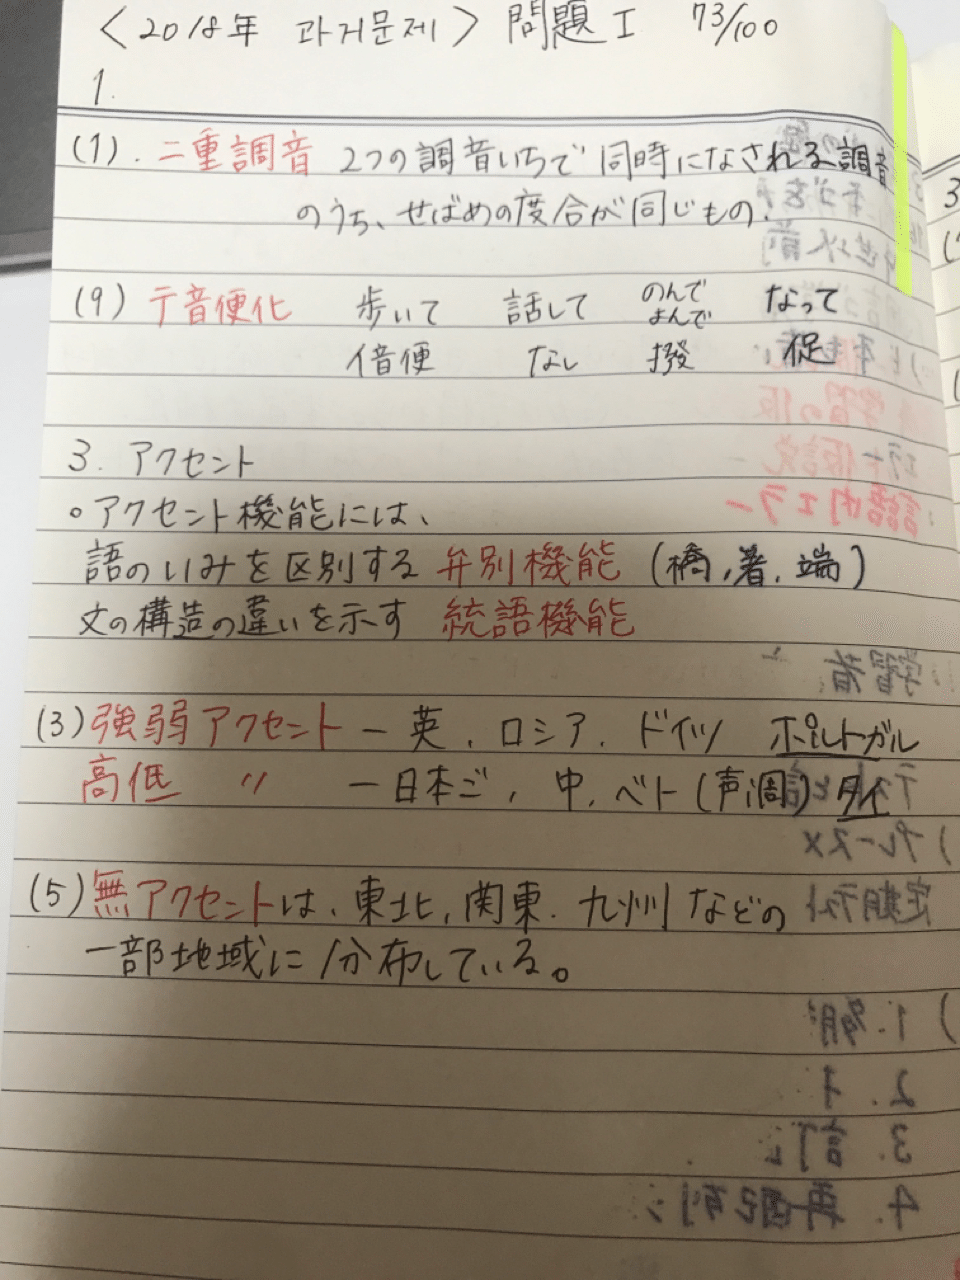 〈2018年 과거문제〉 問題I 73/100
1.
(1). 二重調音 2つの調音いちで同時になされる調音
のうち、せばめの度合が同じもの.
(9) テ音便化 歩いて 話して のんで よんで なって
イ音便 なし 撥 促
3. アクセント
○アクセント機能には、
語のいみを区別する 弁別機能 (橋,著,端)
文の構造の違いを示す 統語機能
(3) 強弱アクセント ー英, ロシア, ドイツ ポルトガル
高低 〃 ー日本ご, 中, ベト(声調) タイ
(5) 無アクセントは、東北, 関東. 九州などの
一部地域に分布している。